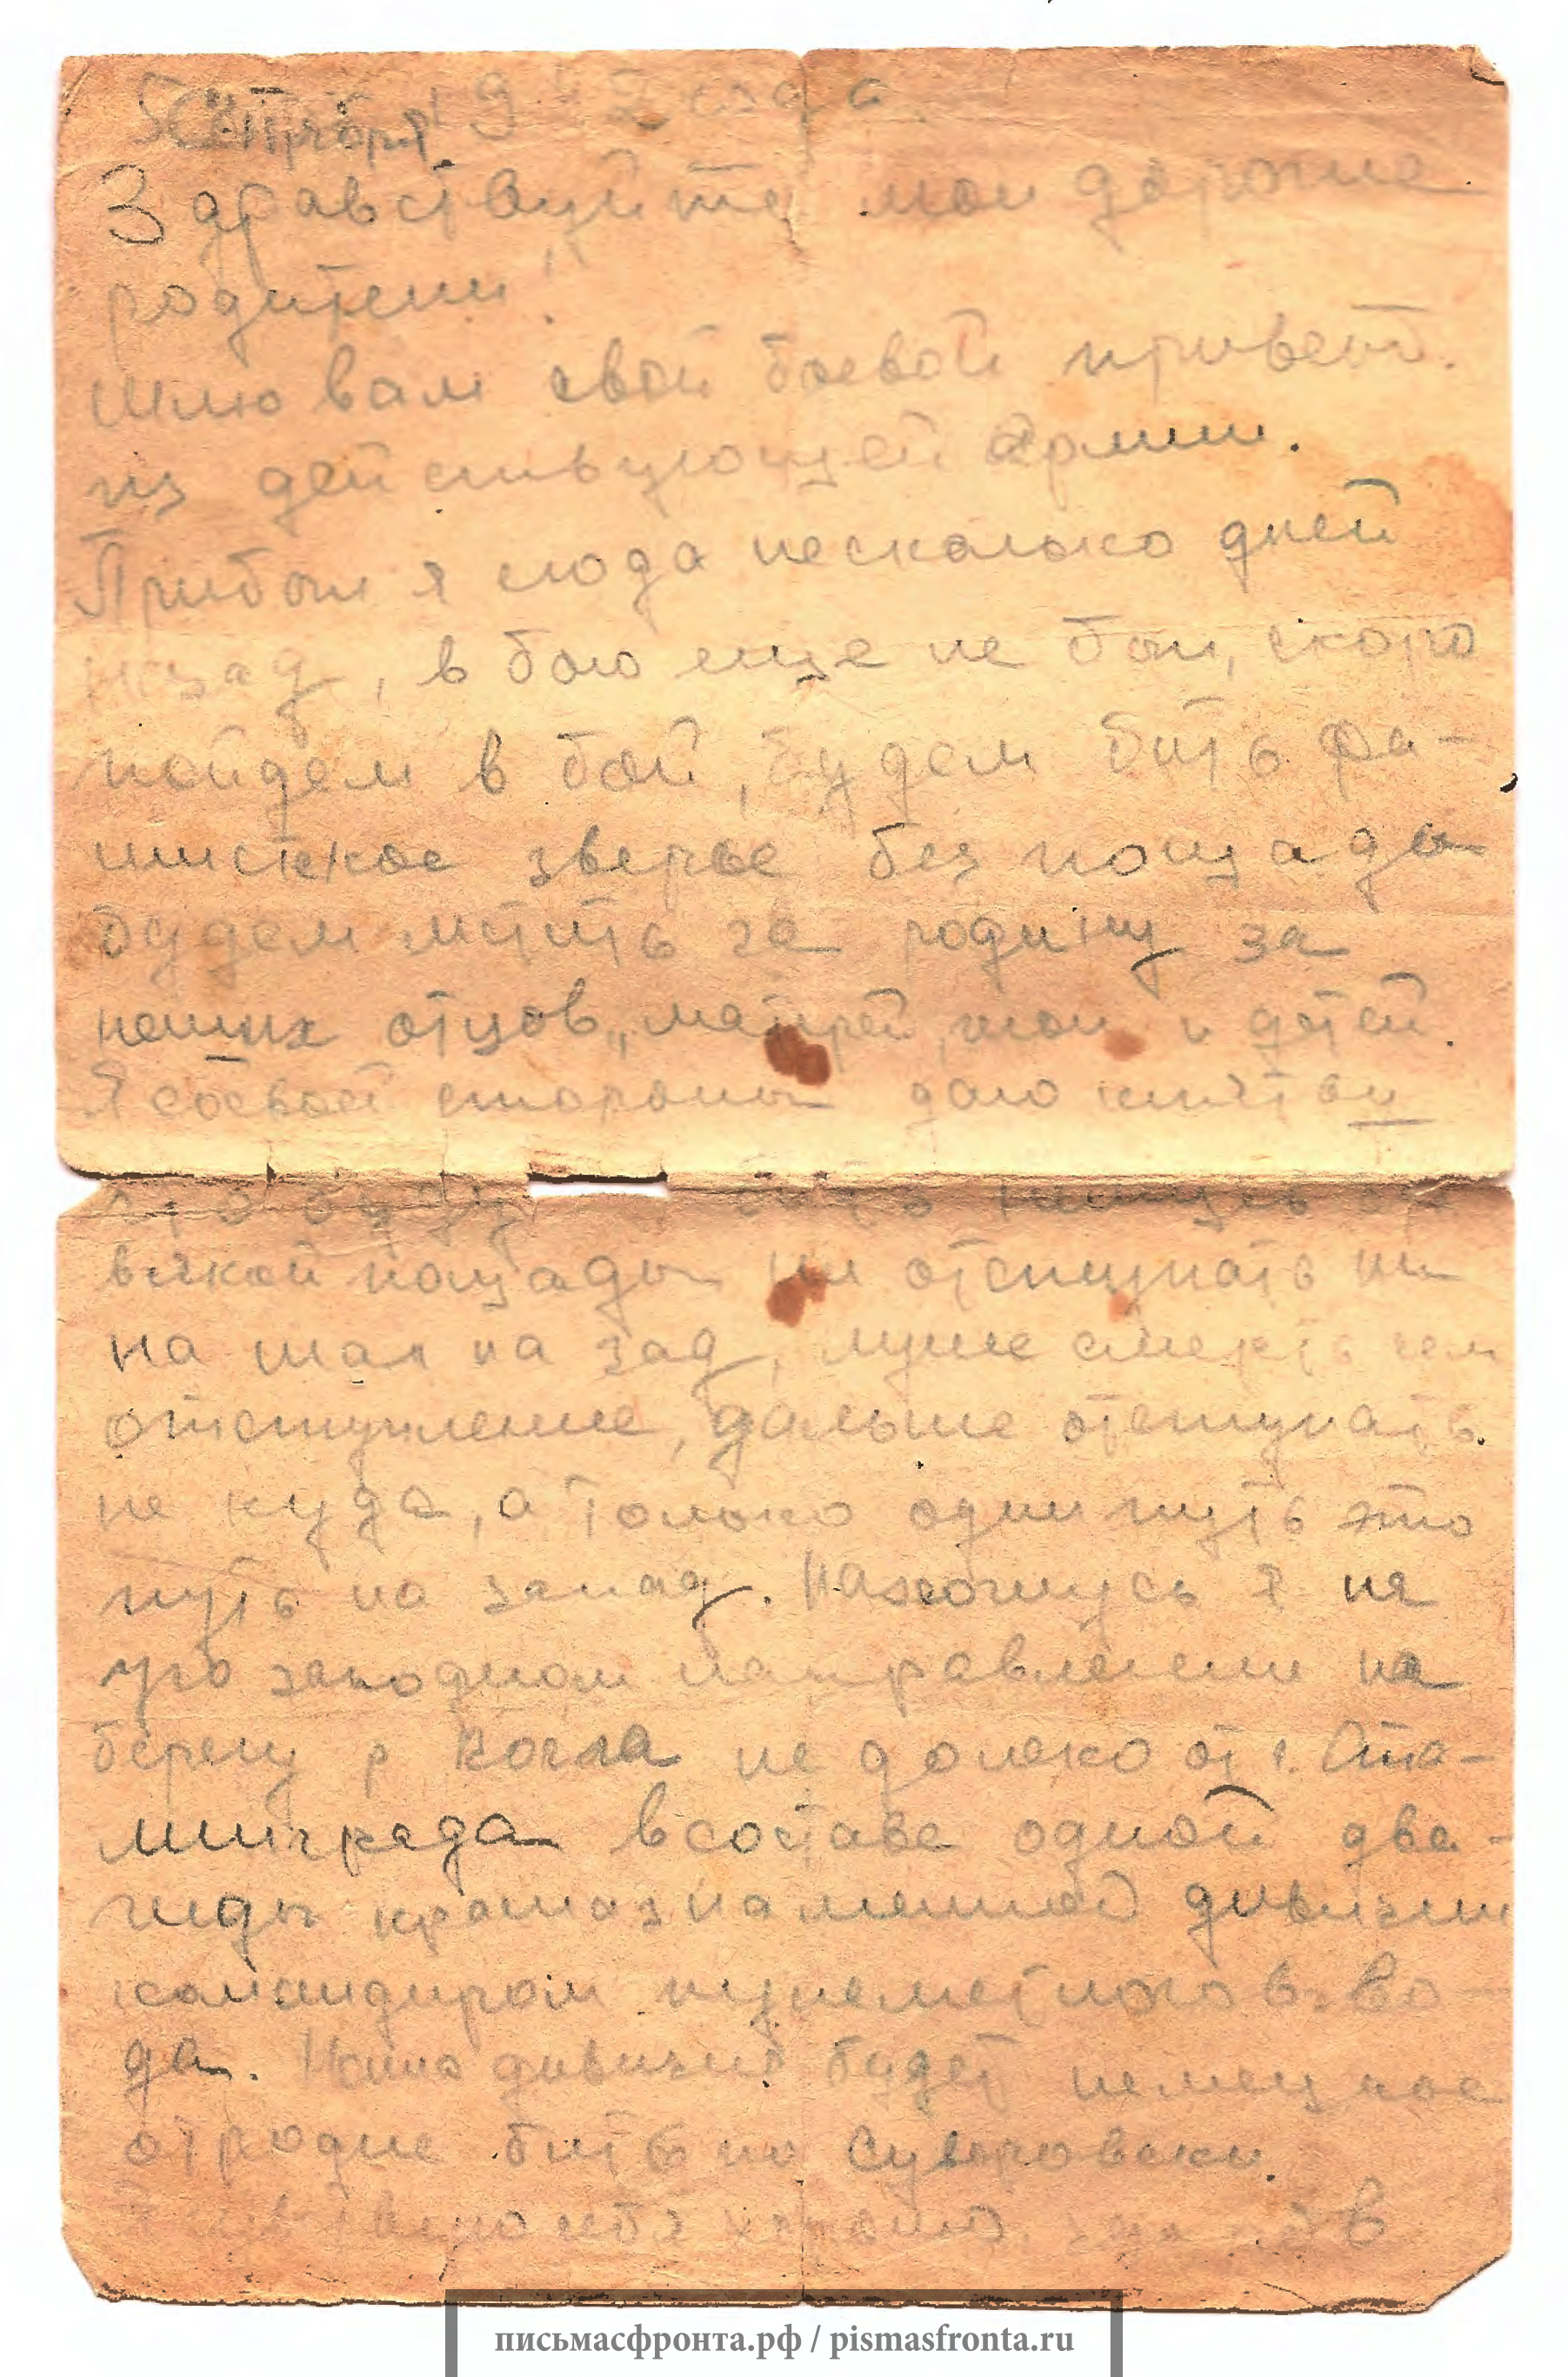 5 Сентября 1942 года.
Здравствуйте мои дорогие
родители.
Шлю вам свой боевой привет.
из действующей Армии.
Прибыл я сюда несколько дней
назад, в бою еще не был, скоро
пойдем в бой, будем бить фа-
шисткое зверье без пощады
будем мстить за родину за
наших отцов, матрей, жон и детей.
Я соевой стороны даю клятву
что буду бить немцев
всякой пощады ни отступать ни
на шаг на зад, луше смерть чем
отступление, дальше отступать
не куда, а только один путь это
путь на запад. Нахожусь я на
юго западном направлении на
берегу р Волга не далеко от г. Ста-
линграда в составе одной два-
жды краснознаменной дивизии
командиром пулеметного взво-
да. Наша дивизия будет немецкое
отродие бить по Суворовски.
себя хорошо,
письмасфронта.рф / pismasfronta.ru